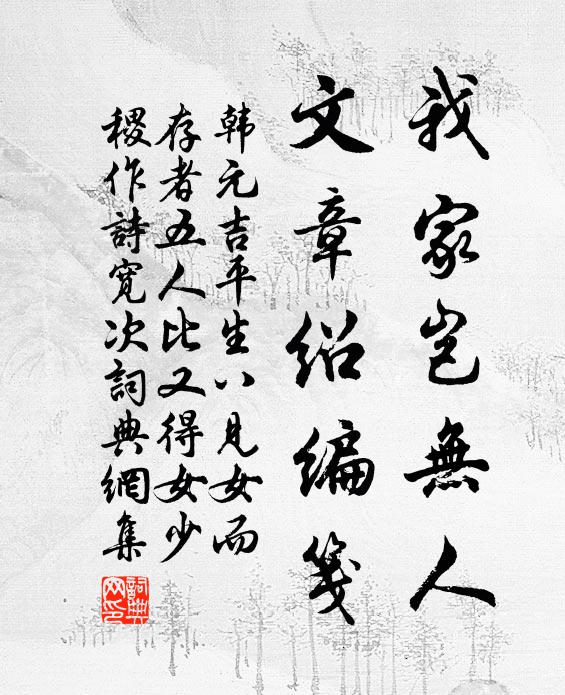 我家岂無人
文章紹編箋
韩元吉平生八見女而
存者五人比又得女少
稷作詩寛次詞典網集
詞典网印